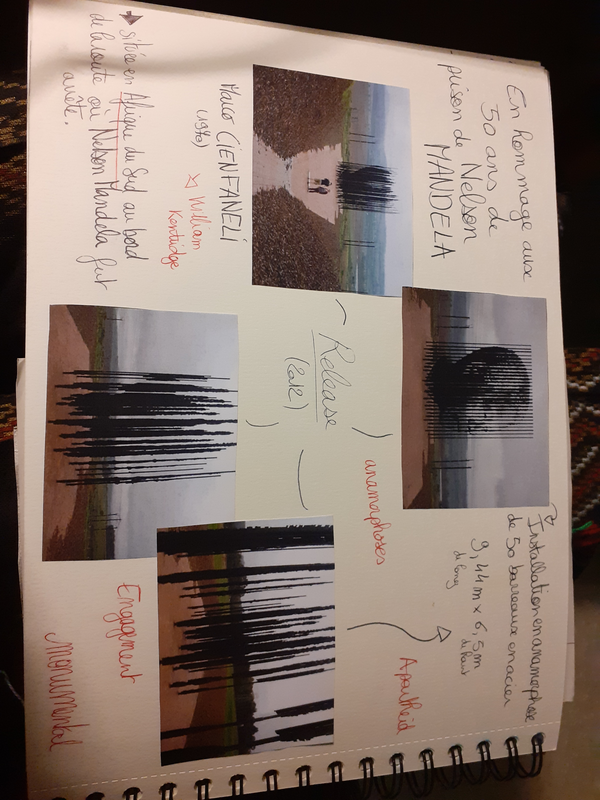 En hommage aux
50 ans de
prison de Nelson
MANDELA
Marco CIENFANELI
(1970)
William
Kentridge
située en Afrique du Sud au bord
de la route où Nelson Mandela fut
arrêté.
Release
(2012)
anamorphoses
Installation en anamorphose
de 50 barreaux en acier
9,44 m x 6,5 m
de long
de haut
Apartheid
Engagement
Monumental